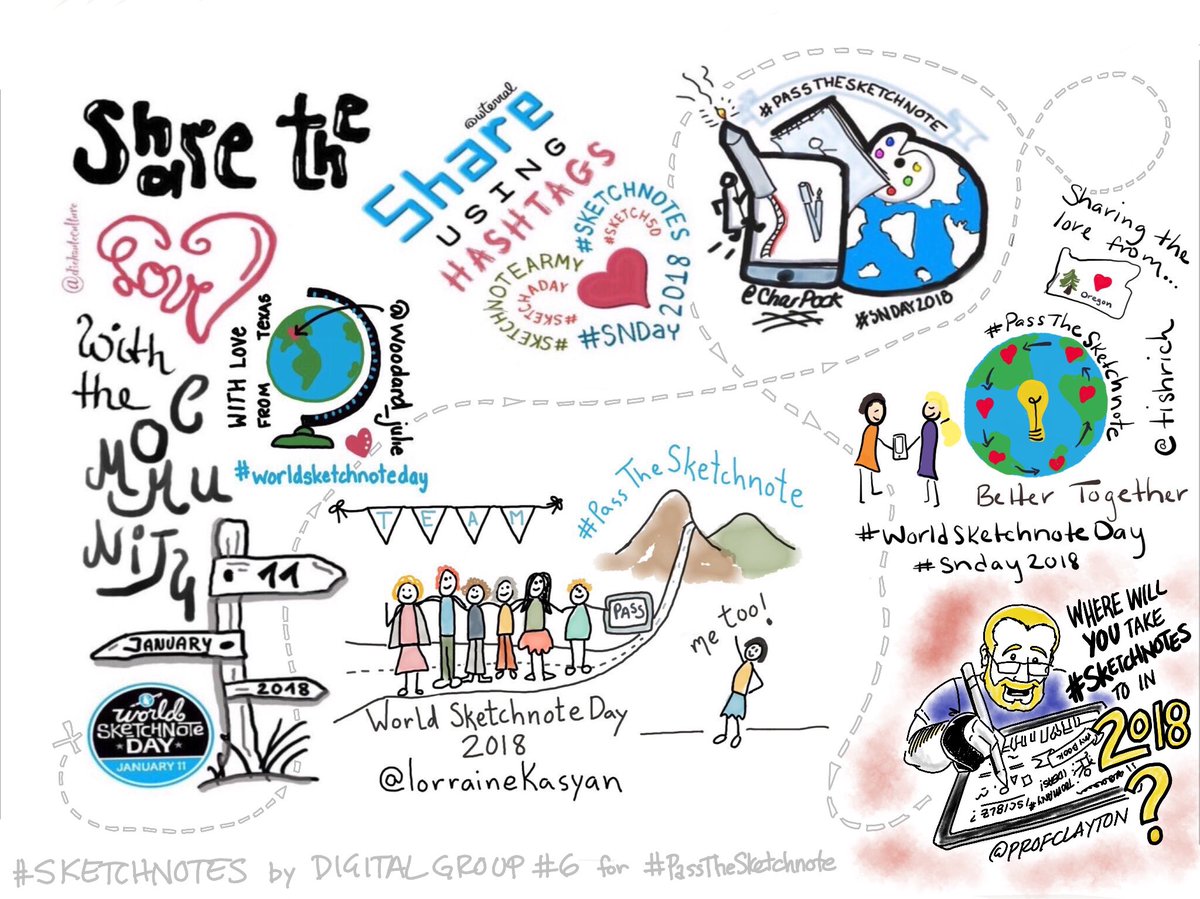 Share the
Love
With
the
COMMUNiTy
11
JANUARY
2018
World
SKETCHNOTE
DAY
JANUARY 11
WITH LOVE
FROM TEXAS
@woodard_julie
#worldsketchnoteday
@wterral
Share
USING
HASHTAGS
#SKETCHNOTES
#SKETCH50
#SKETCHNOTEARMY
#SKETCHADAY
#SNDAY 2018
2018
#PASSTHESKETCHNOTE
@CharPack
#SNDAY2018
Sharing the
love from...
Oregon
#PassTheSketchnote
@tishrich
Better Together
#WorldSketchnoteDay
#Snday2018
TEAM
#PassTheSketchnote
PASS
me too!
World Sketchnote Day
2018
@lorraineKasyan
WHERE WILL
YOU TAKE
#SKETCHNOTES
TO IN
2018
?
@PROFCLAYTON
#SKETCHNOTES by DIGITAL GROUP #6 for #PassTheSketchnote